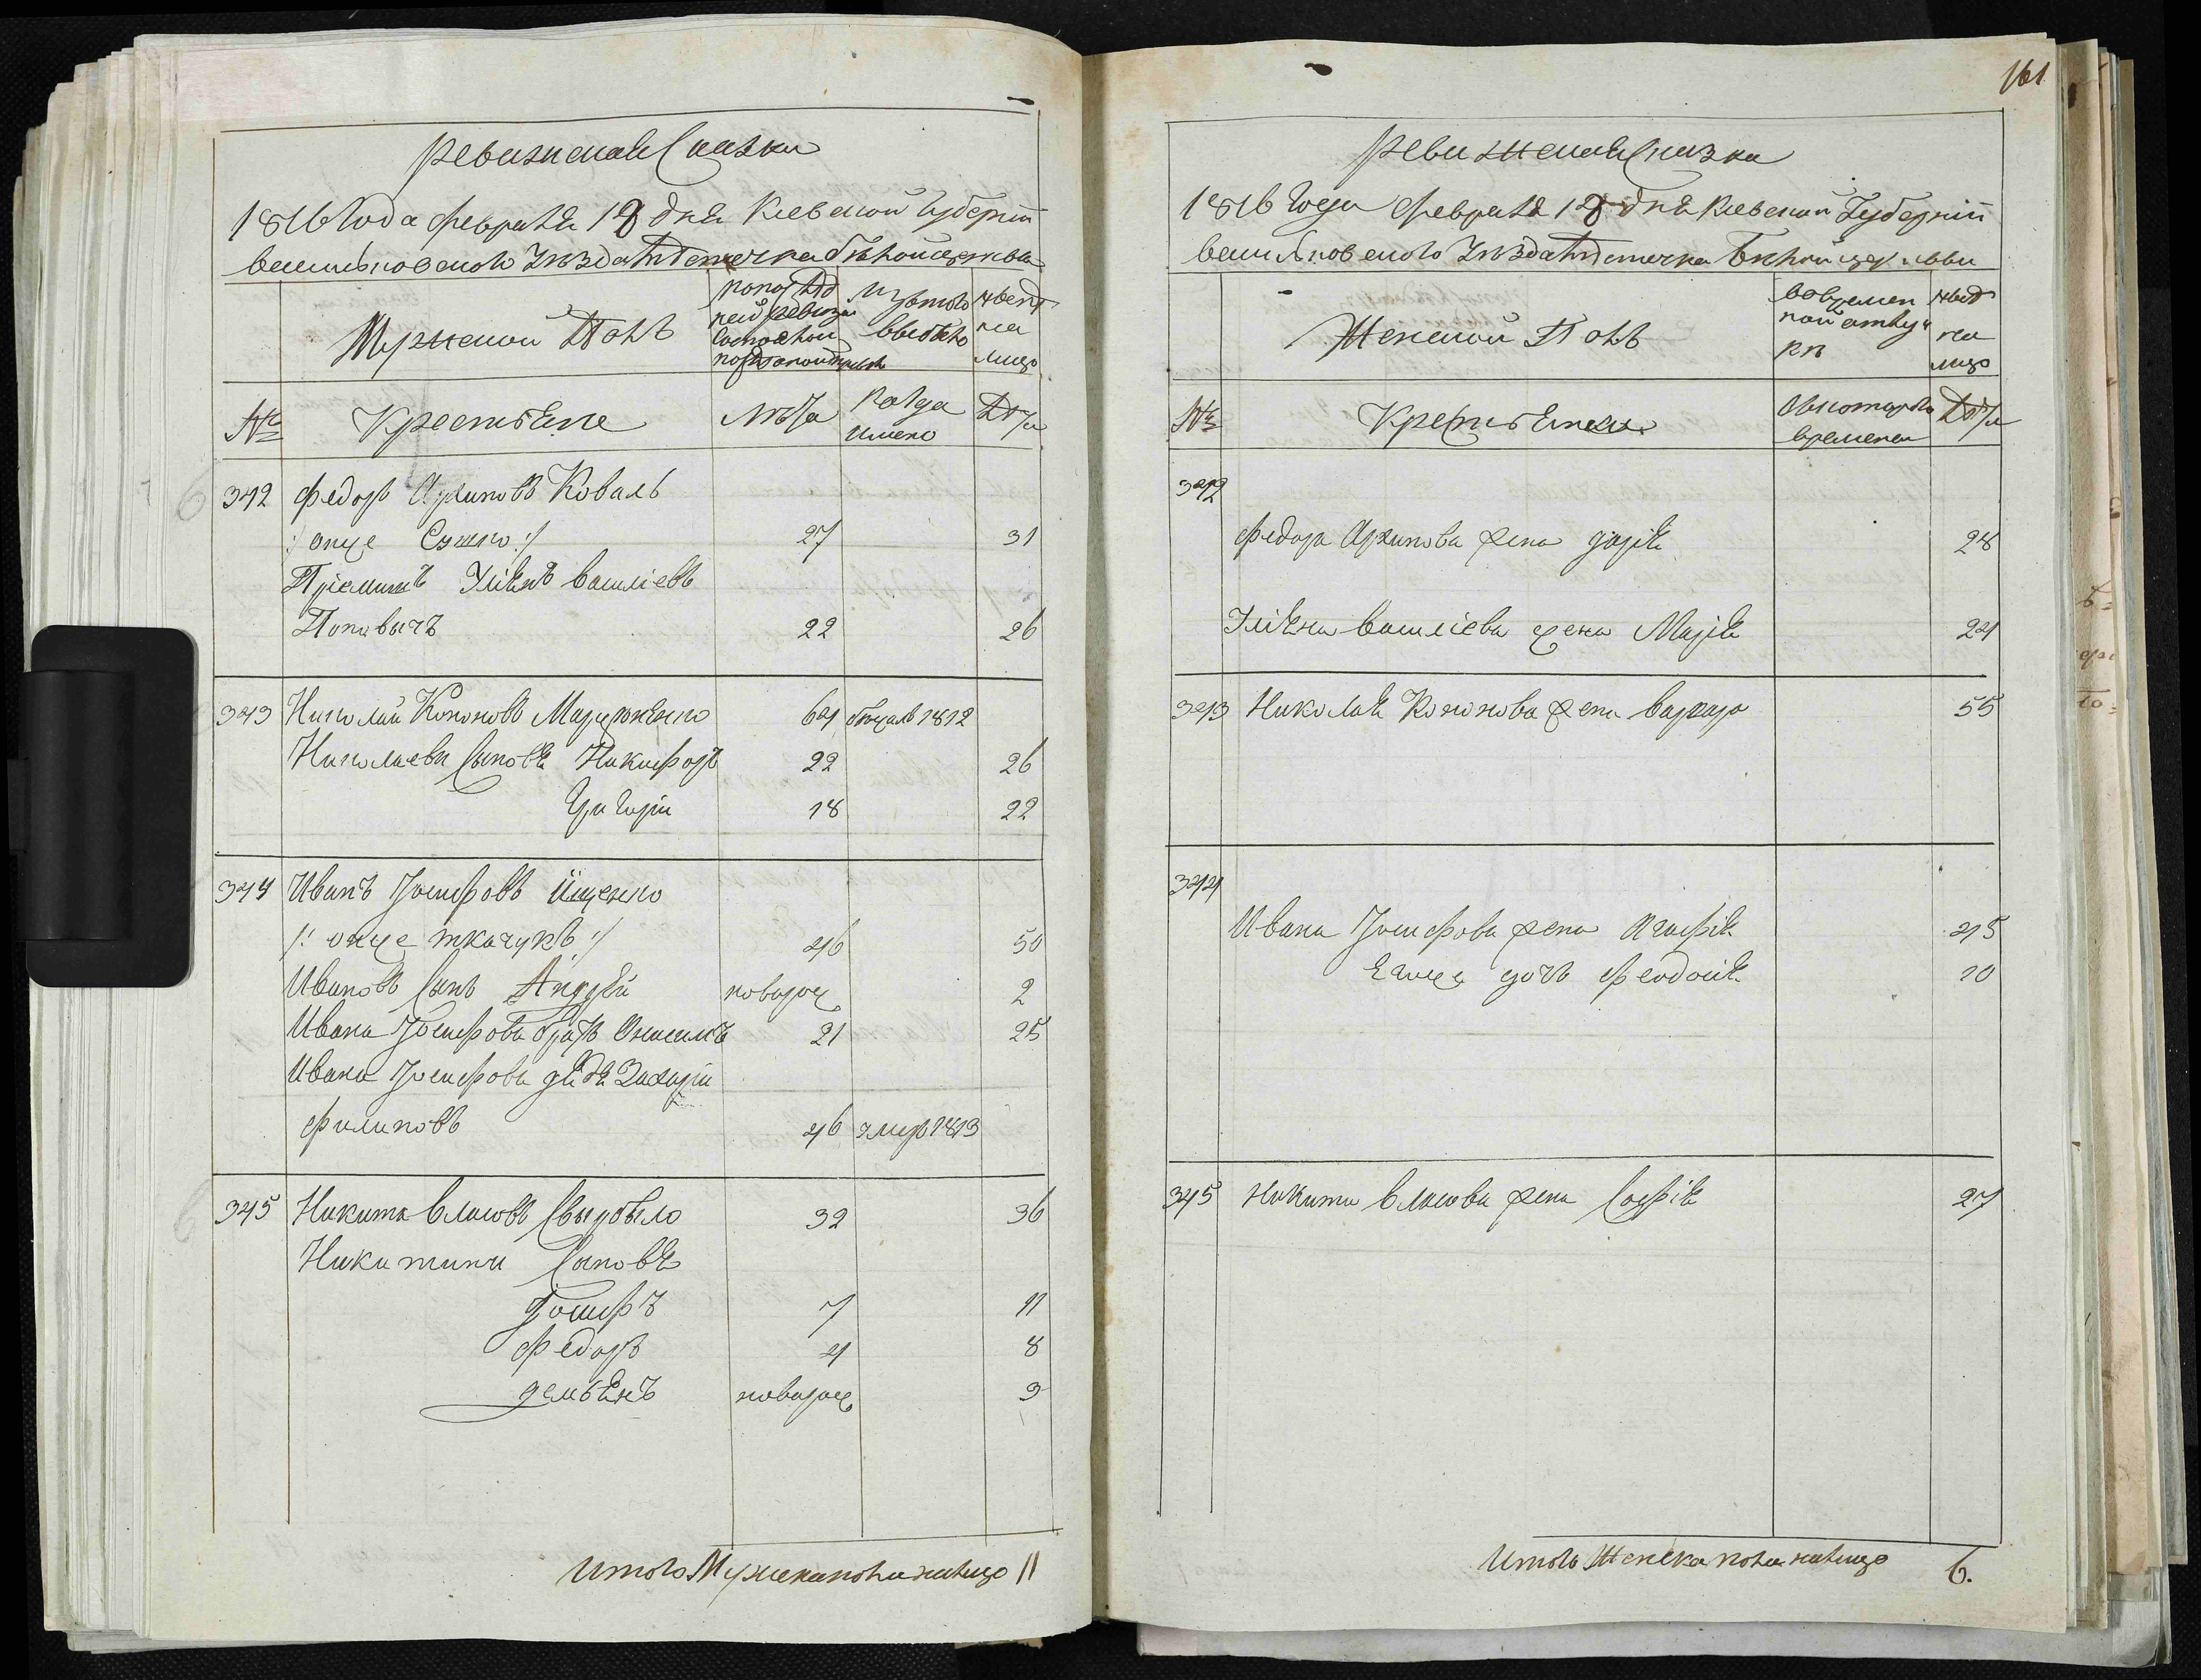 Ревизская Сказка
1816 Года Февраля 18 дня Киевской Губернiи
Васильковского Уезда Местечка Белойцеркви
Мужеской Полъ
по последней ревизiи состояло
изъ того выбыло
ныне на лицо
№ Крестьяне Лѣта Когда именно Лѣта
342 Федоръ Архиповъ Коваль
/: онже :/ 27 31
Прiемышъ Улiянъ Василiевъ
Поповичъ 22 26
343 Николай Кононовъ Марценюкъ 64 бежалъ 1812
Николаеви Сыновя Никифоръ 22 26
Григорiи 18 22
344 Иванъ Iосифовъ Ищенко
/: онже ткачукъ :/ 46 50
Ивановъ Сынъ Андрей новорож 2
Ивана Iосифова братъ Онисимъ 21 25
Ивана Iосифова дядя Захарiи
Филиповъ 46 умеръ 1813
345 Никита Власовъ Свербыло 32 36
Никитини Сыновя
Iосифъ 7 11
Федоръ 4 8
демьянъ новорож 3
Итого Мужеска пола налицо 11
161
Ревизская Сказка
1816 Года Февраля 18 дня Киевской Губернiи
Васильковского Уезда Местечка Белой церкви
Женской Полъ
Во временной отлучкѣ
ныне на лицо
№ Крестьянки Съ котораго времени Лѣта
342
Федора Архипова жена дарiя 28
Улiяна Василiева жена Марiя 24
343 Николая Кононова жена Варвара 55
344
Ивана Iосифова жена Агафiя 45
Егоже дочь Феодосiя 10
345 Никиты Власова жена Софiя 27
Итого Женска пола налицо 6.